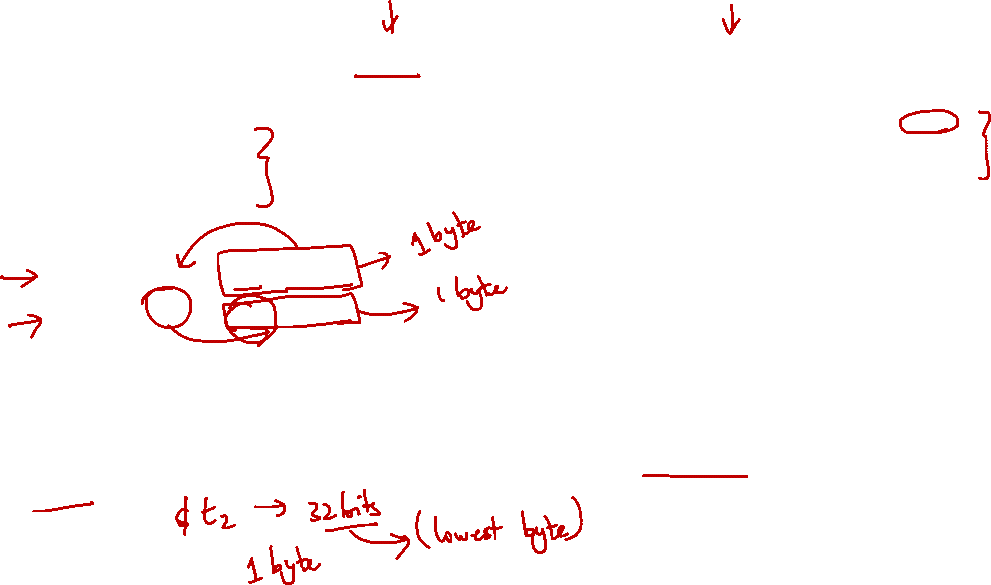 1 byte
1 byte
$t2 → 32 bits
(lowest byte)
1 byte